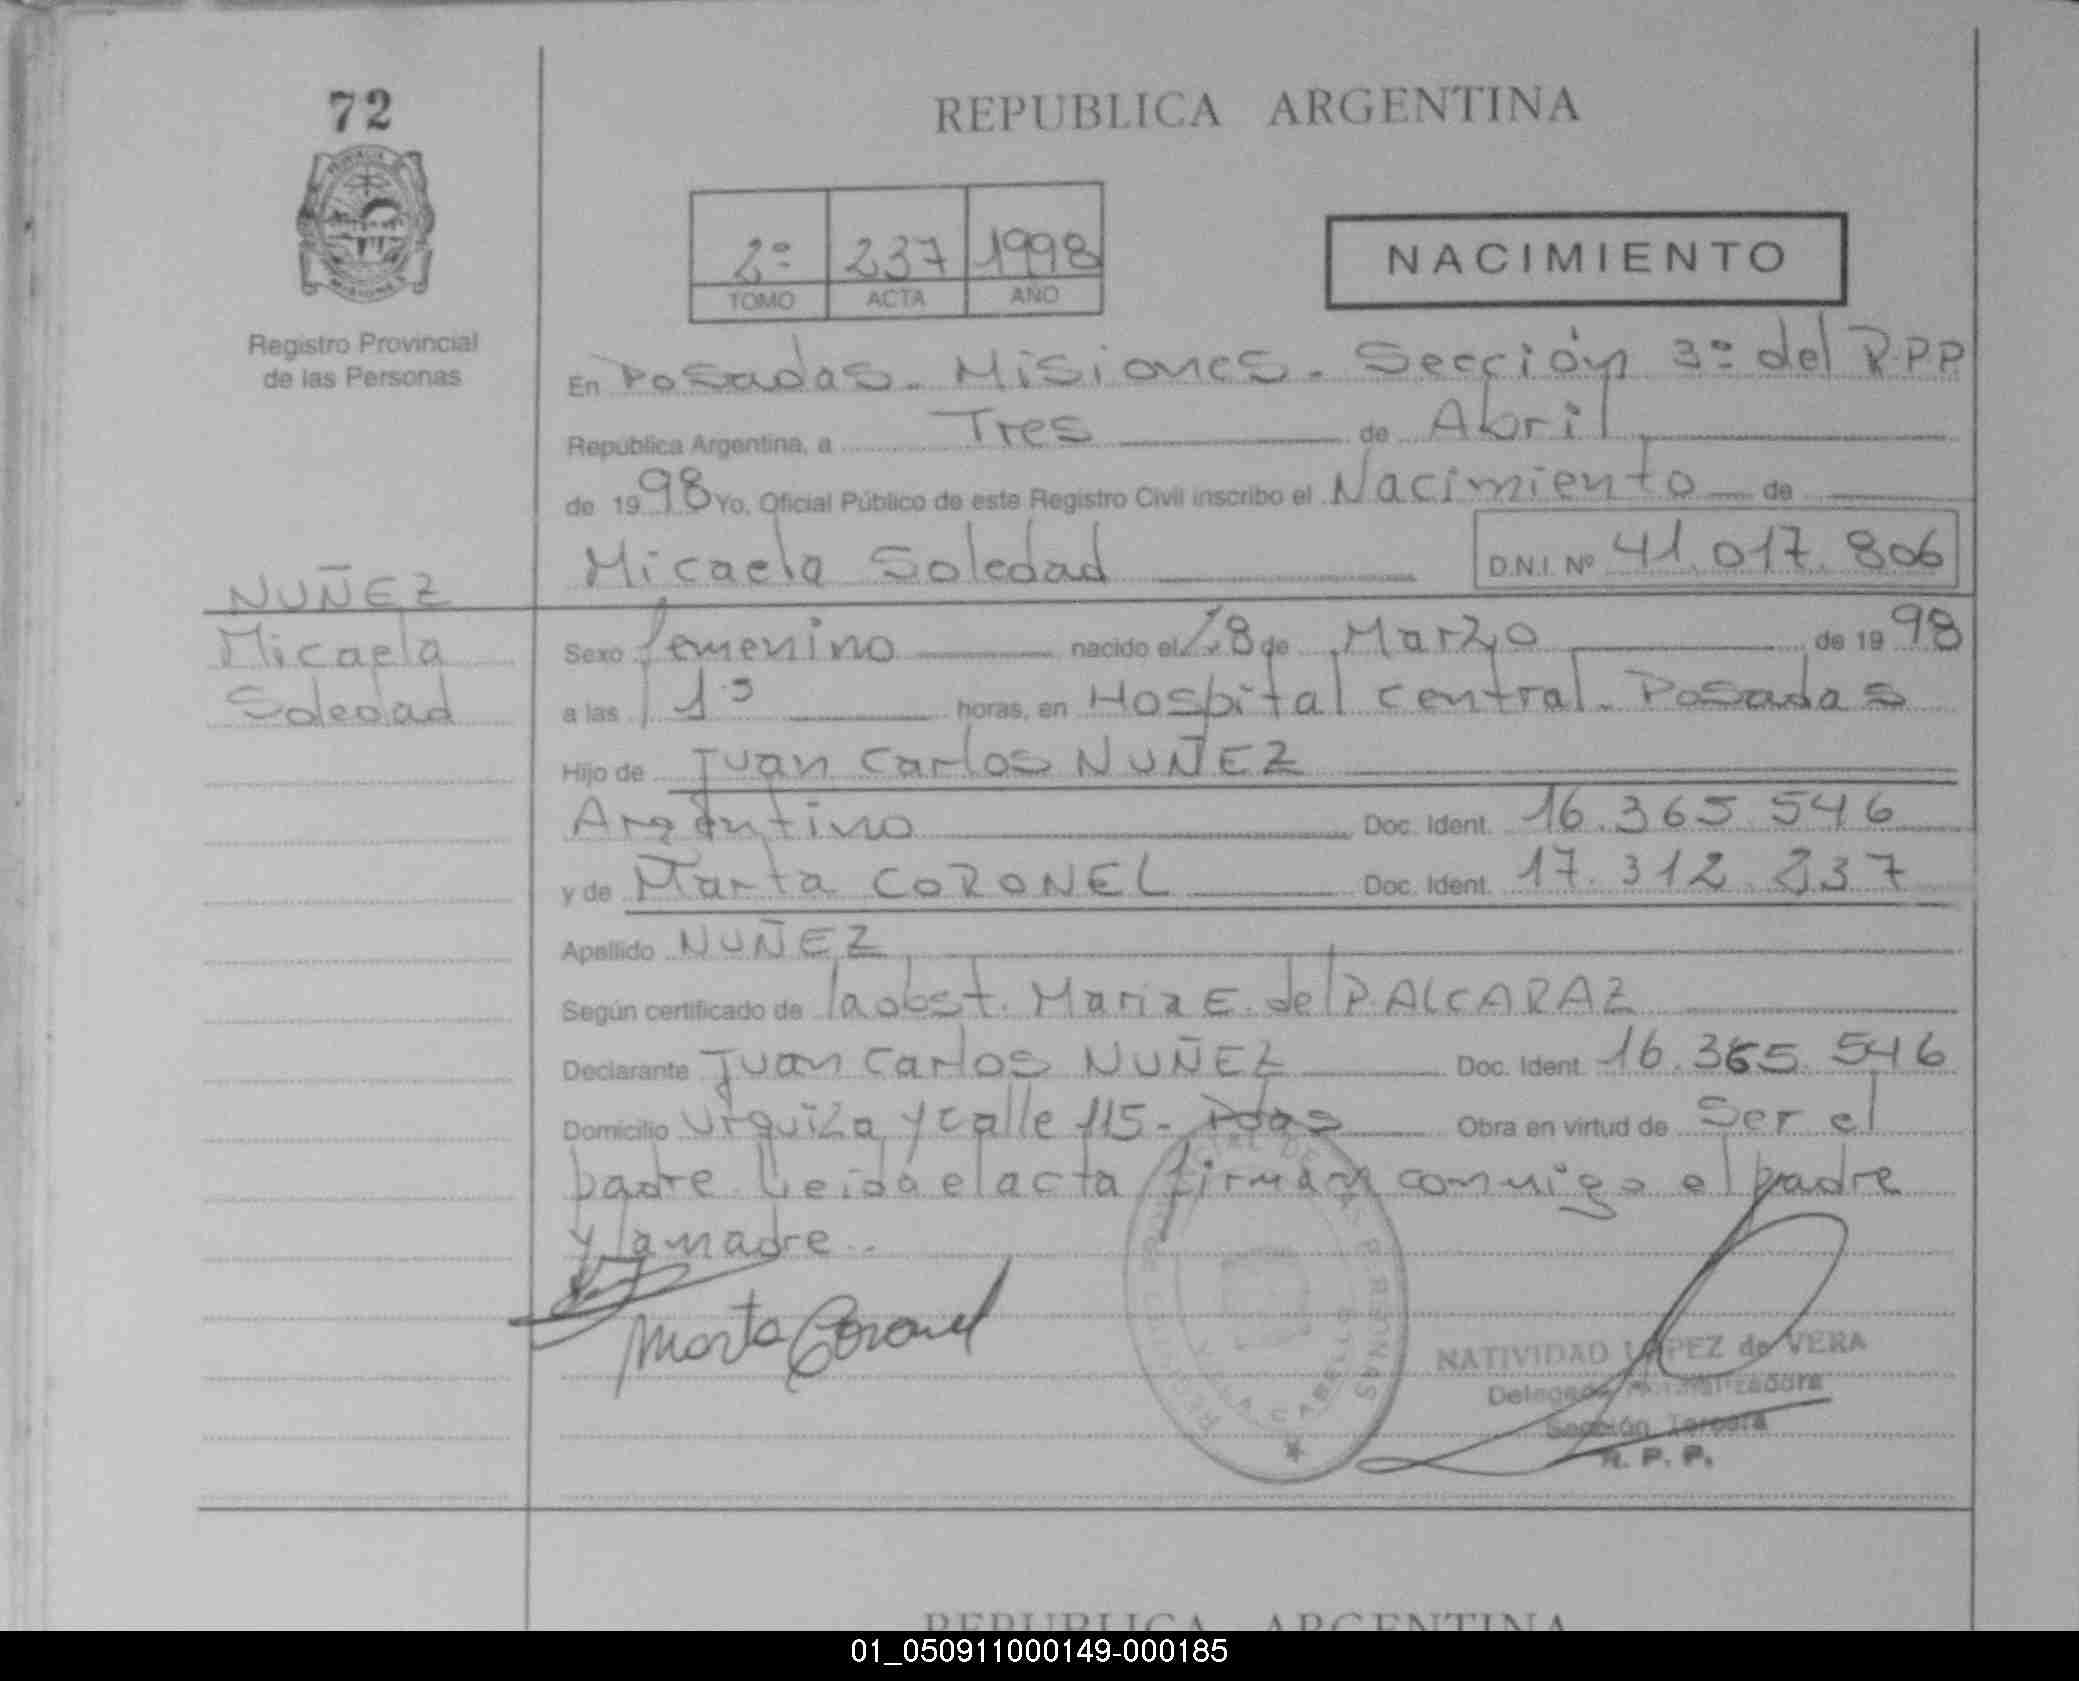 72
REPUBLICA ARGENTINA
2º 237 1998
TOMO ACTA AÑO
NACIMIENTO
Registro Provincial
de las Personas
En Posadas. Misiones. Sección 3º del R.P.P
República Argentina, a Tres de Abril
de 1998 Yo, Oficial Público de este Registro Civil inscribo el Nacimiento de
Micaela Soledad D.N.I. Nº 41.017.806
NUÑEZ
Micaela
Soledad
Sexo femenino nacido el 28 de Marzo de 1998
a las horas, en Hospital Central. Posadas
Hijo de Juan Carlos NUÑEZ
Argentino Doc. Ident. 16.365.546
y de Marta CORONEL Doc. Ident. 17.312.237
Apellido NUÑEZ
Según certificado de la obst. Maria E. del P. ALCARAZ
Declarante Juan Carlos NUÑEZ Doc. Ident. 16.365.546
Domicilio Urquiza y calle 115 - Pdas Obra en virtud de Ser el
padre. Leida el acta firman conmigo el padre
y la madre.
Marta Coronel
NATIVIDAD LOPEZ de VERA
Delegada Normalizadora
Sección Tercera
R. P. P.
REPUBLICA ARGENTINA
01_050911000149-000185